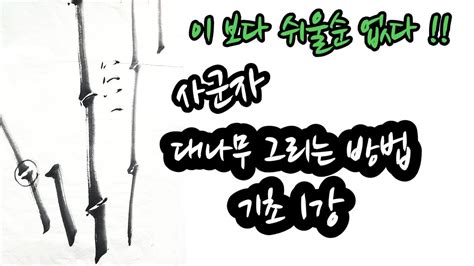 이 보다 쉬울순 없다 !!
사군자
대나무 그리는 방법
기초 1강